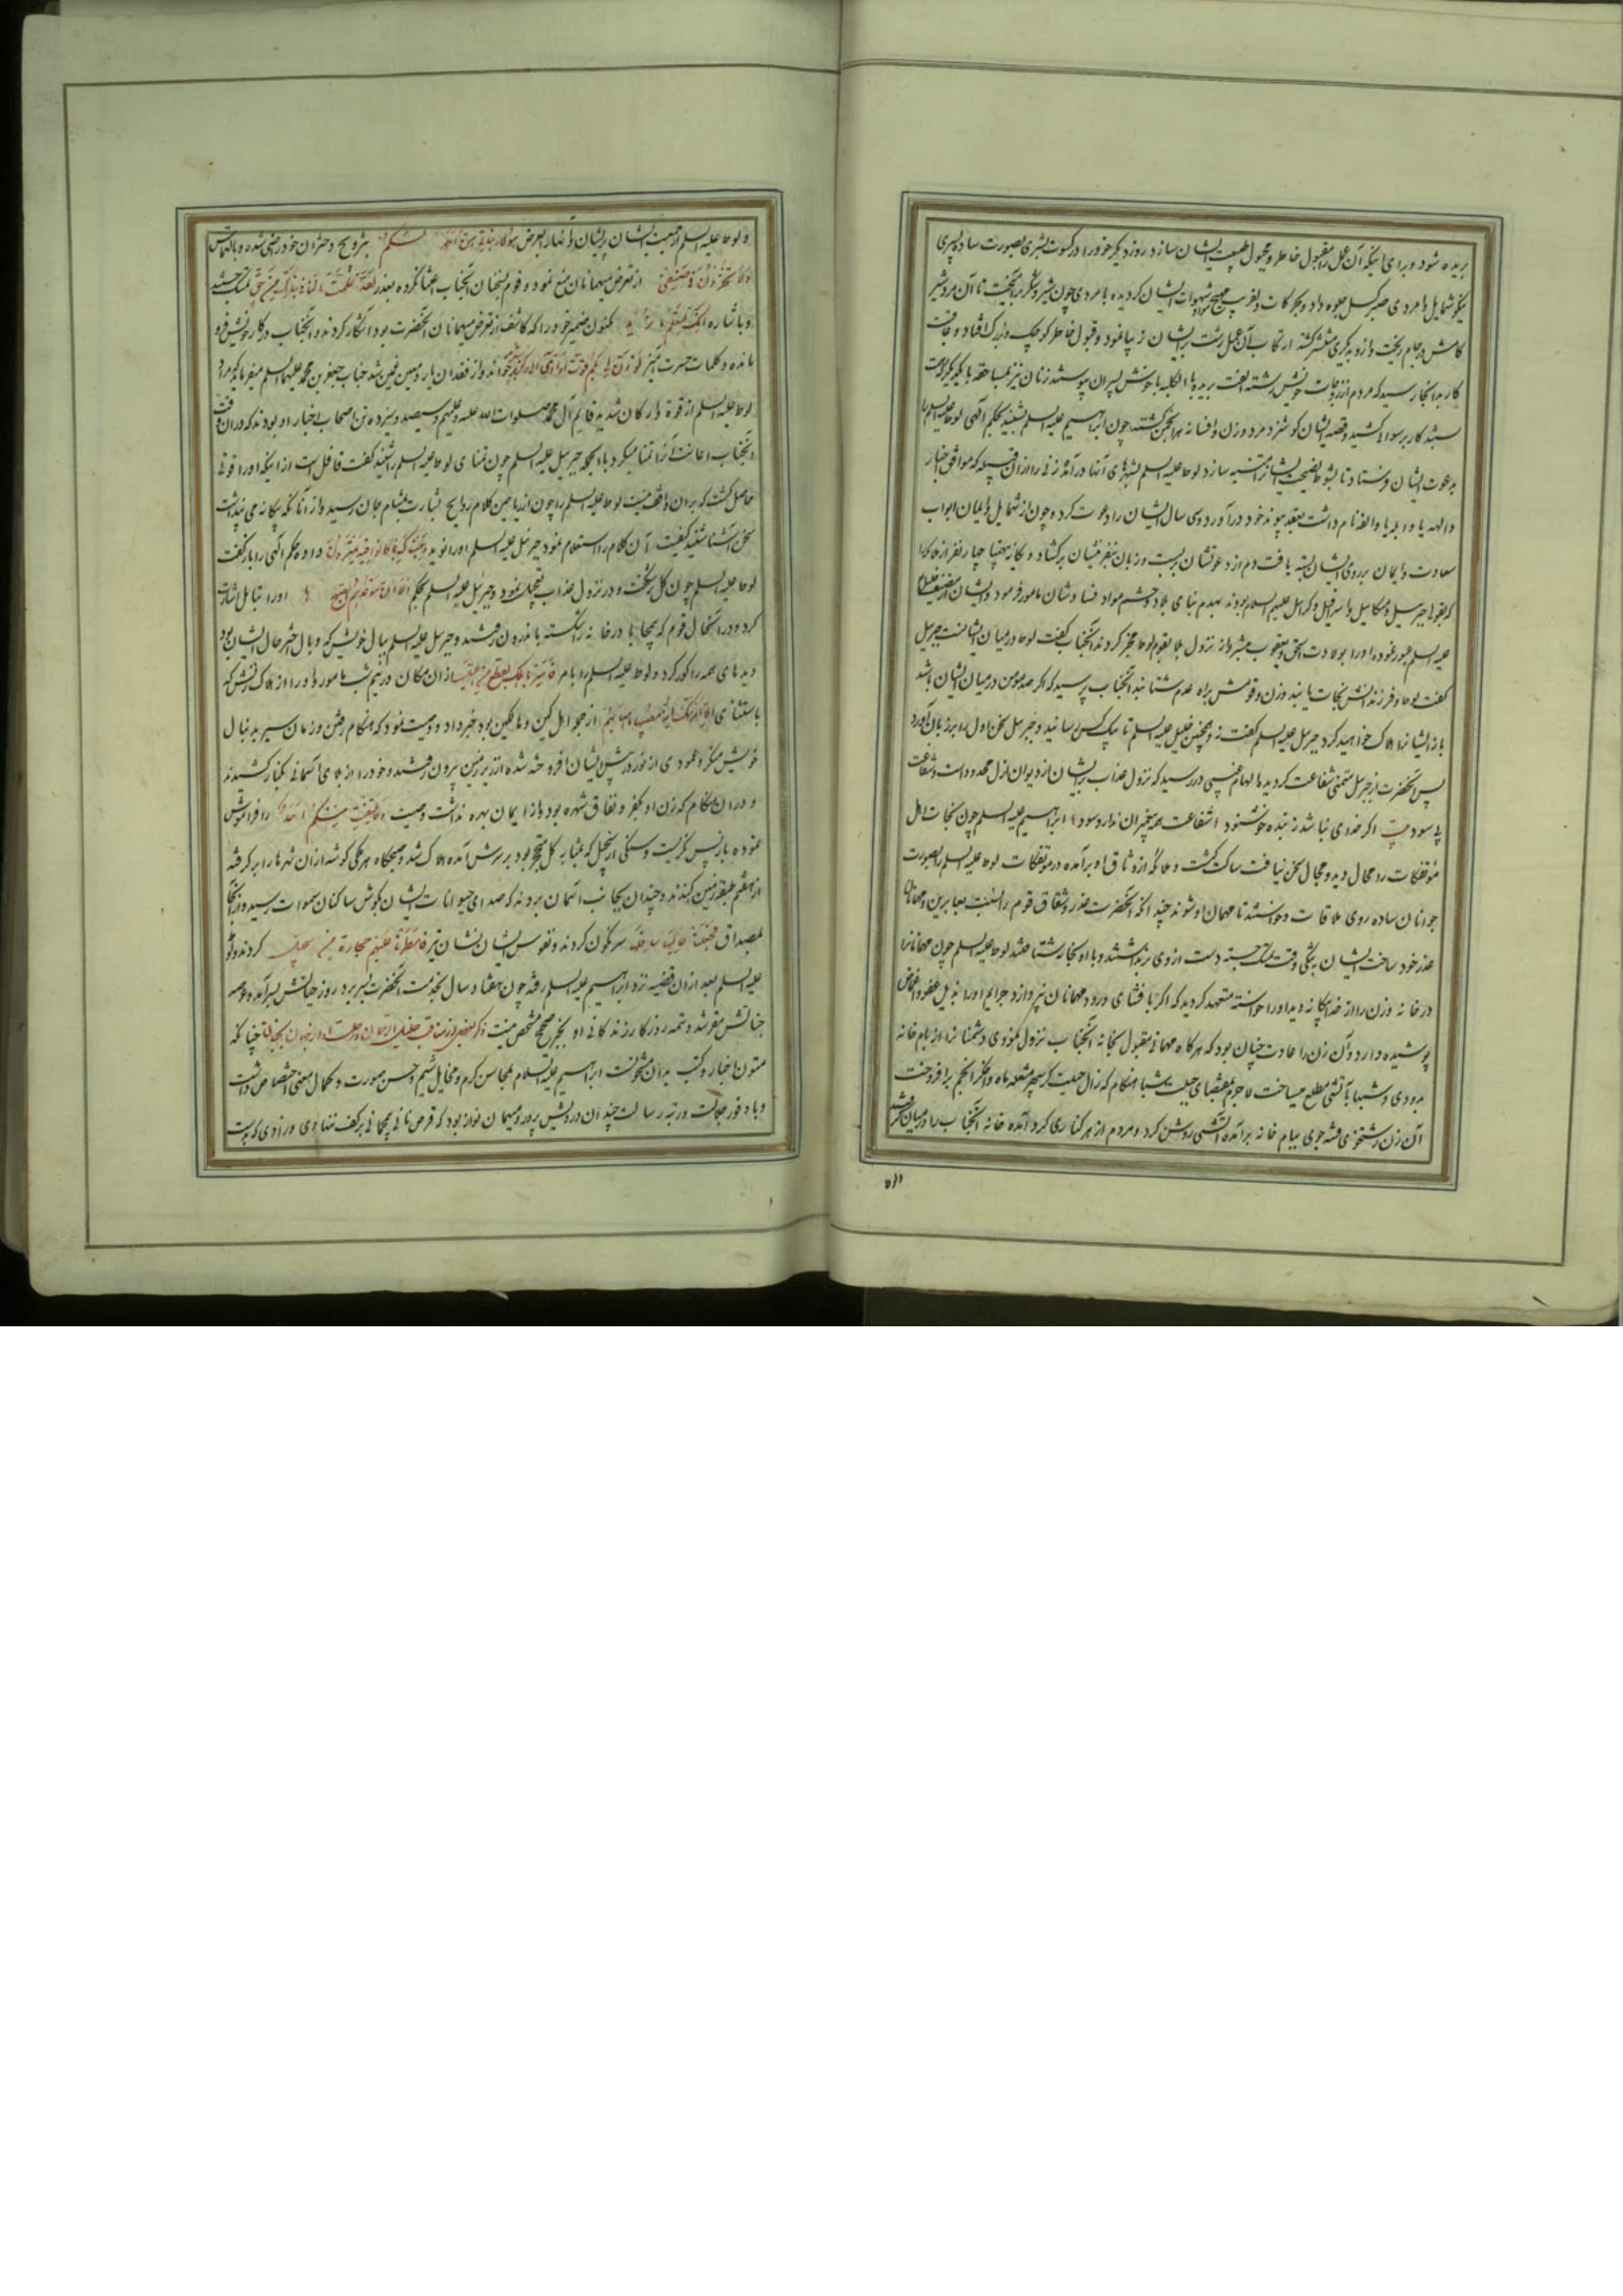 بریده شود و برای اینکه آن عمل را مقبول خاطر و مجبول طبیعت ایشان سازد روز دیگر خود را در کسوت بشری بصورت ساده پسری
نیکو شمایل و امردی صبر گسل جلوه داد و بحرکات دلفریب مهیج مواد شهوات ایشان گردیده با مردی چون شیر و شکر برآمیخت تا آن مرد شیر
کامش در جام ریخت و از و بدیگری منتشر گشته ارتکاب آن عمل زشت بر ایشان زیبا نمود و قبول خاطر کوچک و بزرگ افتاد و عاقبت
کار بدانجا رسید که مردم از زوجات خویش رشته الفت بریده بالکلیه با خوش پسران پیوستند زنان نیز بمساحقه با یکدیگر
کار برسوائی کشید و قصه ایشان گوشزد مرد و زن و افسانه هر انجمن گشت چون ابراهیم علیه السلم شنید بحکم الهی لوط علیه السلم را
بدعوت ایشان فرستاد تا بشنو نصیحت ایشانرا متنبه سازد لوط علیه السلم بشهرهای آنها درآمد و زنی را از آن قبیله که موافق اخبار
والهه یا واهله یا والغه نام داشت بعقد پیوند خود درآورد و سی سال ایشان را دعوت کرد و چون از شمایل و ایمان ابواب
سعادت و ایمان بر روی ایشان بسته یافت دم از دعوتشان بربست و زبان بنفرینشان برگشاد و یگانه بیهمتا چهار نفر از ملائکه را
که بقولی جبرئیل و میکائیل و اسرافیل و کرئیل علیهم السلم بودند بهدم بنای بلاد و حسم مواد فساد شان مامور فرمود و ایشان
علیه السلم عبور نموده او را بولادت اسحق و یعقوب مبشر و از نزول بلا بقوم لوط مخبر کردند آنجناب گفت لوط در میان ایشانست جبرئیل
گفت لوط و فرزندانش نجات یابند و زن و قومش براه عدم شتابند آنجناب پرسید که اگر صد مومن در میان ایشان باشد
باز ایشانرا هلاک خواهید کرد جبرئیل علیه السلم گفت نه و همچنین خلیل علیه السلم تا بیک کس رسانید و جبرئیل سخن اول را بر زبان آورد
پس آنحضرت از جبرئیل متمنی شفاعت گردید ملهم غیبی در رسید که نزول عذاب بر ایشان از دیوان ازل محدود است و شفاعت
بی سود بیت اگر خدای نباشد ز بنده خوشنود شفاعت همه پیغمبران ندارد سود ابراهیم علیه السلم چون نجات اهل
مؤتفکات را محال دید و مجال سخن نیافت ساکت گشت و ملائکه از وثاق او برآمده در مؤتفکات لوط علیه السلم را بصورت
جوانان ساده روی ملاقات و خواستند تا مهمان او شوند چندانکه آنحضرت عذر و شقاق قوم را
عذر خود ساخت ایشان به تنگی وقت تمسک جسته دست از وی برنداشتند و با او بخانه شتافتند لوط علیه السلم چون مهمانانرا
در خانه و زن را از خدا بیگانه دید او را خواسته متعهد گردید که اگر بافشای ورود مهمانان نپردازد جرایم او را بذیل عفو و اغماض
پوشیده دارد و آن زن را عادت چنان بود که هر گاه مهمانی مقبول بخانه آنجناب نزول نمودی دشمنانرا از بام خانه
بدودی و شبها بآتشی مطلع میساخت لاجرم بمقتضای جبلت شباهنگام که زال حیلت گر سپهر مشعله ماه و اخگر انجم برافروخت
آن زن زشتخوی فتنه جوی ببام خانه برآمده آتشی روشن کرد و مردم از هر کناری گرد آمده خانه آنجناب را در میان گرفتند
و لوط
و لوط علیه السلم از جمعیت ایشان پریشان و انهار العرض هؤلاء بناتی هن اطهر لکم بتزویج دختران خود راضی شده و بالتماس
ولا تخزون فی ضیفی از تعرض میهمانان منع نمود و قوم بسخنان آنجناب اعتنا نکرده بعذر لقد علمت ما لنا فی بناتک من حق تمسک جستند
و باشاره انک لتعلم ما نرید مکنون ضمیر خود را که کاشف از تعرض میهمانان آنحضرت بود آشکار کردند و آنجناب در کار خویش فرو
مانده و کلمات حسرت آمیز لو ان لی بکم قوة او آوی الی رکن شدید خواند و از فقدان یار و معین غمین شد جناب جعفر بن محمد علیهما السلم میفرماید که مراد
لوط علیه السلم از قوة و ارکان شدید قائم آل محمد صلوات الله علیه و علیهم و سیصد و سیزده تن اصحاب اخیار او بودند که در آن وقت
آنجناب اعانت آنرا تمنا میکرد بالجمله جبرئیل علیه السلم چون تمنای لوط علیه السلم را شنید گفت غافل است از اینکه او را قوتی
حاصل گشت که بر آن واقف نیست لوط علیه السلم را چون از ریاحین کلام روایح بشارت بمشام جان رسید و از آنانکه بیگانه می پنداشت
سخن آشنا شنید کیفیت آن کلام را استعلام نمود جبرئیل علیه السلم او را نوید و جئناک بما کانوا فیه یمترون داد و حکم الهی را باز گفت
لوط علیه السلم چون گل بشکفت و در نزول عذاب تعجیل نمود و جبرئیل علیه السلم بحکم ان موعدهم الصبح او را تباهل اشارت
کرد و در آن حال قوم که بیمحابا در خانه را شکسته باندرون رفتند و جبرئیل علیه السلم ببال خویش که وبال خسر حال ایشان بود
دیدهای همه را کور کرد و لوط علیه السلم را بامر فاسر باهلک بقطع من اللیل از آن مکان در نیم شب مامور و او را از هلاک زنش که
باستثنای الا امراتک انه مصیبها ما اصابهم از جمله اهل کین و هالکین بود خبر داد و وصیت نمود که هنگام رفتن و زمان سیر بدنبال
خویش ننگرد و عمودی از نور در پیش ایشان افروخته شده از زیر زمین بیرون رفتند و خود را از بلای آسمانی بکنار کشیدند
و در آن هنگام که زن او بکفر و نفاق شهره بود و از ایمان بهره نداشت وصیت ولا یلتفت منکم احد را فراموش
نموده باز پس نگریست و سنگی از سجیل که بمثابه گل متحجر بود بر سرش آمده هلاک شد و صبحگاه هر ملکی گوشه از آن شهرها را برگرفته
از هفتم طبقه زمین کندند و چندان بجانب آسمان بردند که صدای حیوانات ایشان بگوش ساکنان سموات رسید و از آنجا
بمصداق فجعلنا عالیها سافلها سرنگون کردند و نفوس ایشان نشان تیر فامطرنا علیهم حجارة من سجیل کردند و لوط
علیه السلم بعد از آن قضیه نزد ابراهیم علیه السلم رفته چون هفتاد سال بخدمت آنحضرت بسر برد روز حیاتش بسر آمده
جنانش مقر شد و تتمه روزگار زندگانی او بخبر صحیح مشخص نیست ذکر بعضی از مناقب خلیل الرحمان و رحلت او از جهان بجنان چنانکه
متون اخبار و کتب بدان مشحونست ابراهیم علیه السلام بمحاسن کرم و مخایل شیم و حسن صورت و کمال معنی اختصاص داشت
و با وفور جلالت و رتبه رسالت چندان درویش پرور و میهمان نواز بود که قرص نانی بیمهمانی بر کف ننهادی و زادی که بدست